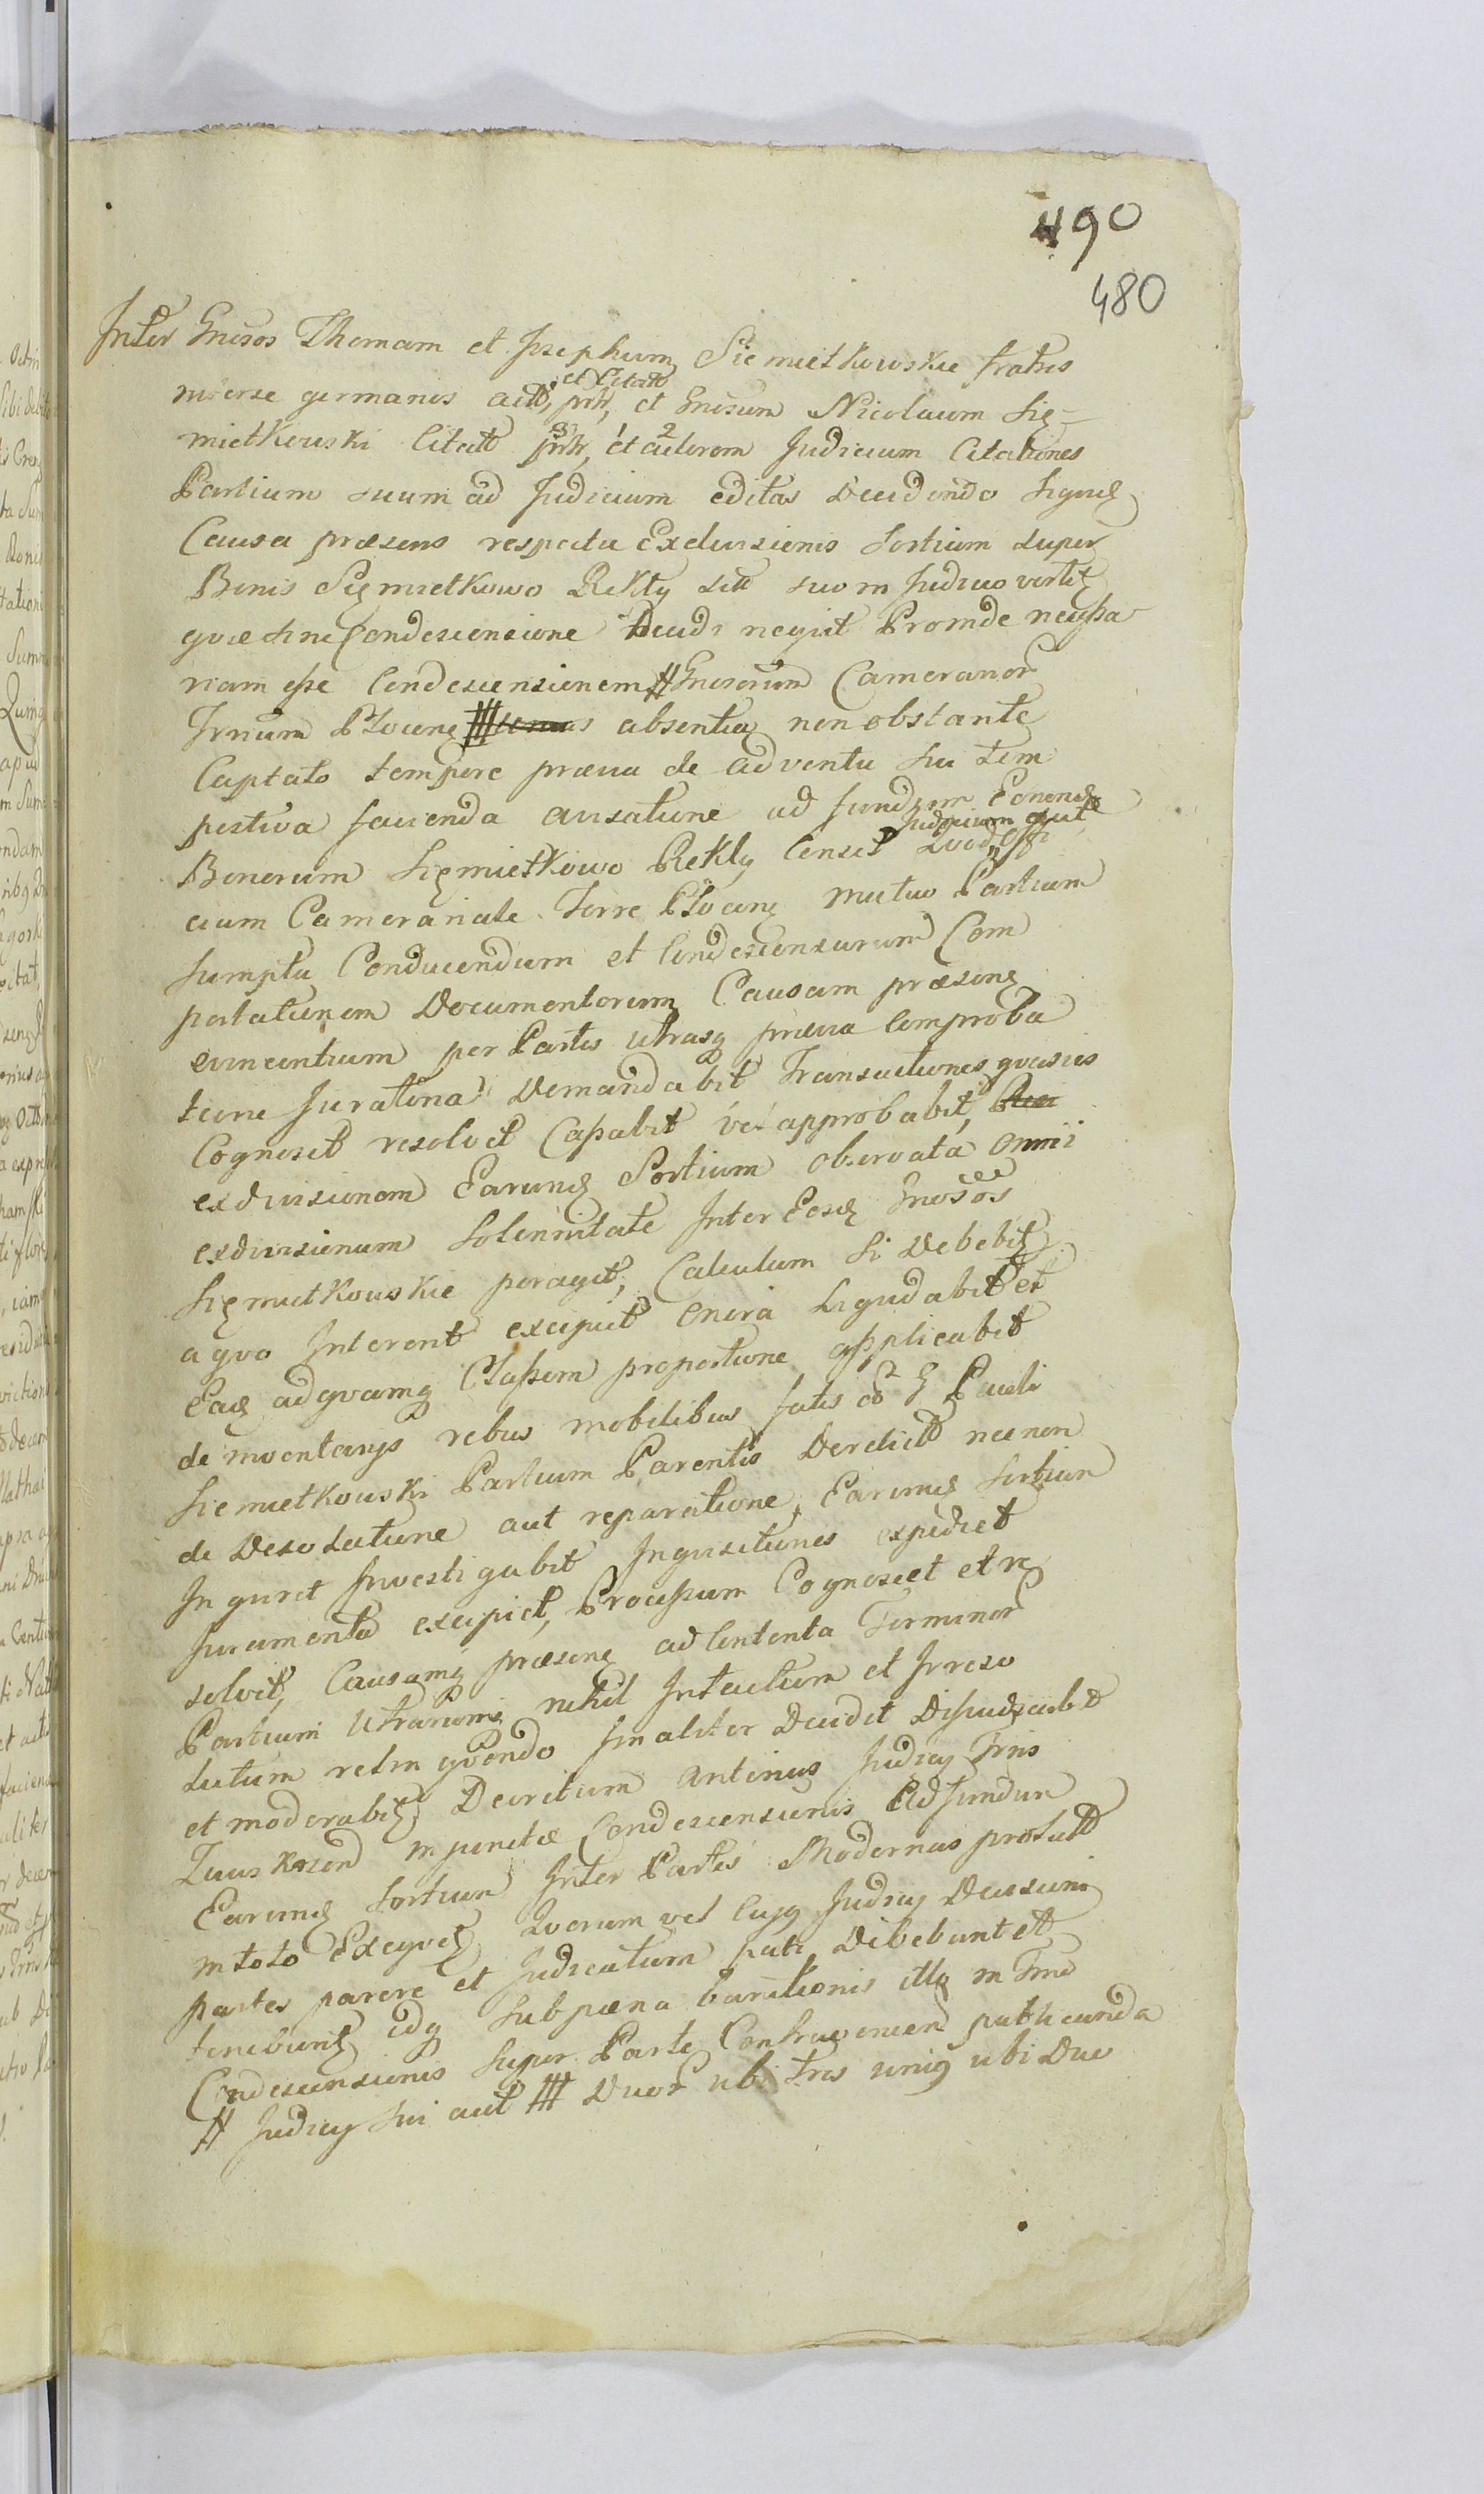 490
480
Inter Gnosos Thomam et Josephum Siemietkowskie fratres
inverse germanos act, et Citatt
prtt, et Gnosum Nicolaum Się-
mietkowski Citatt prtt, et actorem Judicium Citationes
3 1 2
Partium suum ad Judicium editas Decidendo Siquid
Causa præsens respectu Exdivisionis Sortium super
Bonis Sięmietkowo Rekły sitt suo in Judicio vertit
quæ sine Condescensione Decidi nequit Proinde necessa-
riam esse Condescensionem # Gnosorum Cameranor
Trrium Płocens absentia non obstante
Captato tempore prævia de adventu sui tem
pestiva facienda avisatione ad fundum
Judicium
Bonorum Sięmietkowo Rekły Censet Quod Offi
cium Camerariale Terre Płocens mutuo Partium
sumptu Conducendum et Condescensurum Com
portationem Documentorum Causam præsens
concernentium per Partes utrasq prævia Comproba
tione Juratoria Demandabit Transactiones quasvis
Cognoscet resolvet Cassabit vel approbabit,
exdivisionem Earund Sortium observata omni
exdivisionum Solennitate Inter Eosd Gnosos
Sięmietkowskie peraget, Calculum Si Debebit
a quo Intererit excipiet onera Liquidabit et
Ead ad quamq Classem proportione applicabit
de inventarys rebus mobilibus fatis Pauli
Siemietkowski Partium Parentis Derelict necnon
de Desolatione aut reparatione Earund Sortium
Inquiret Investigabit Inquisitiones expediet
Juramenta excipiet, Processum Cognoscet et re
solvet, Causamq præsens ad Contenta Terminor
Partium Utrarumq nihil Intactum et Irreso
lutum relinquendo finaliter Decidet Dijudicabit
et moderabit Decretum Judicy Trris
in puncto Condescensionis Ad fundum
Earund Sortium Inter Partes Modernas prolatt
in toto Exequet Quorum vel Cujq Judicy Decisum
partes parere et Judicatum pati Debebunt et
tenebunt idq sub pæna banitionis in Trmo
Condescensionis super Parte Contraveniend publicanda
# Judicy sui aut ### Duor ubi tres uniq ubi Duo